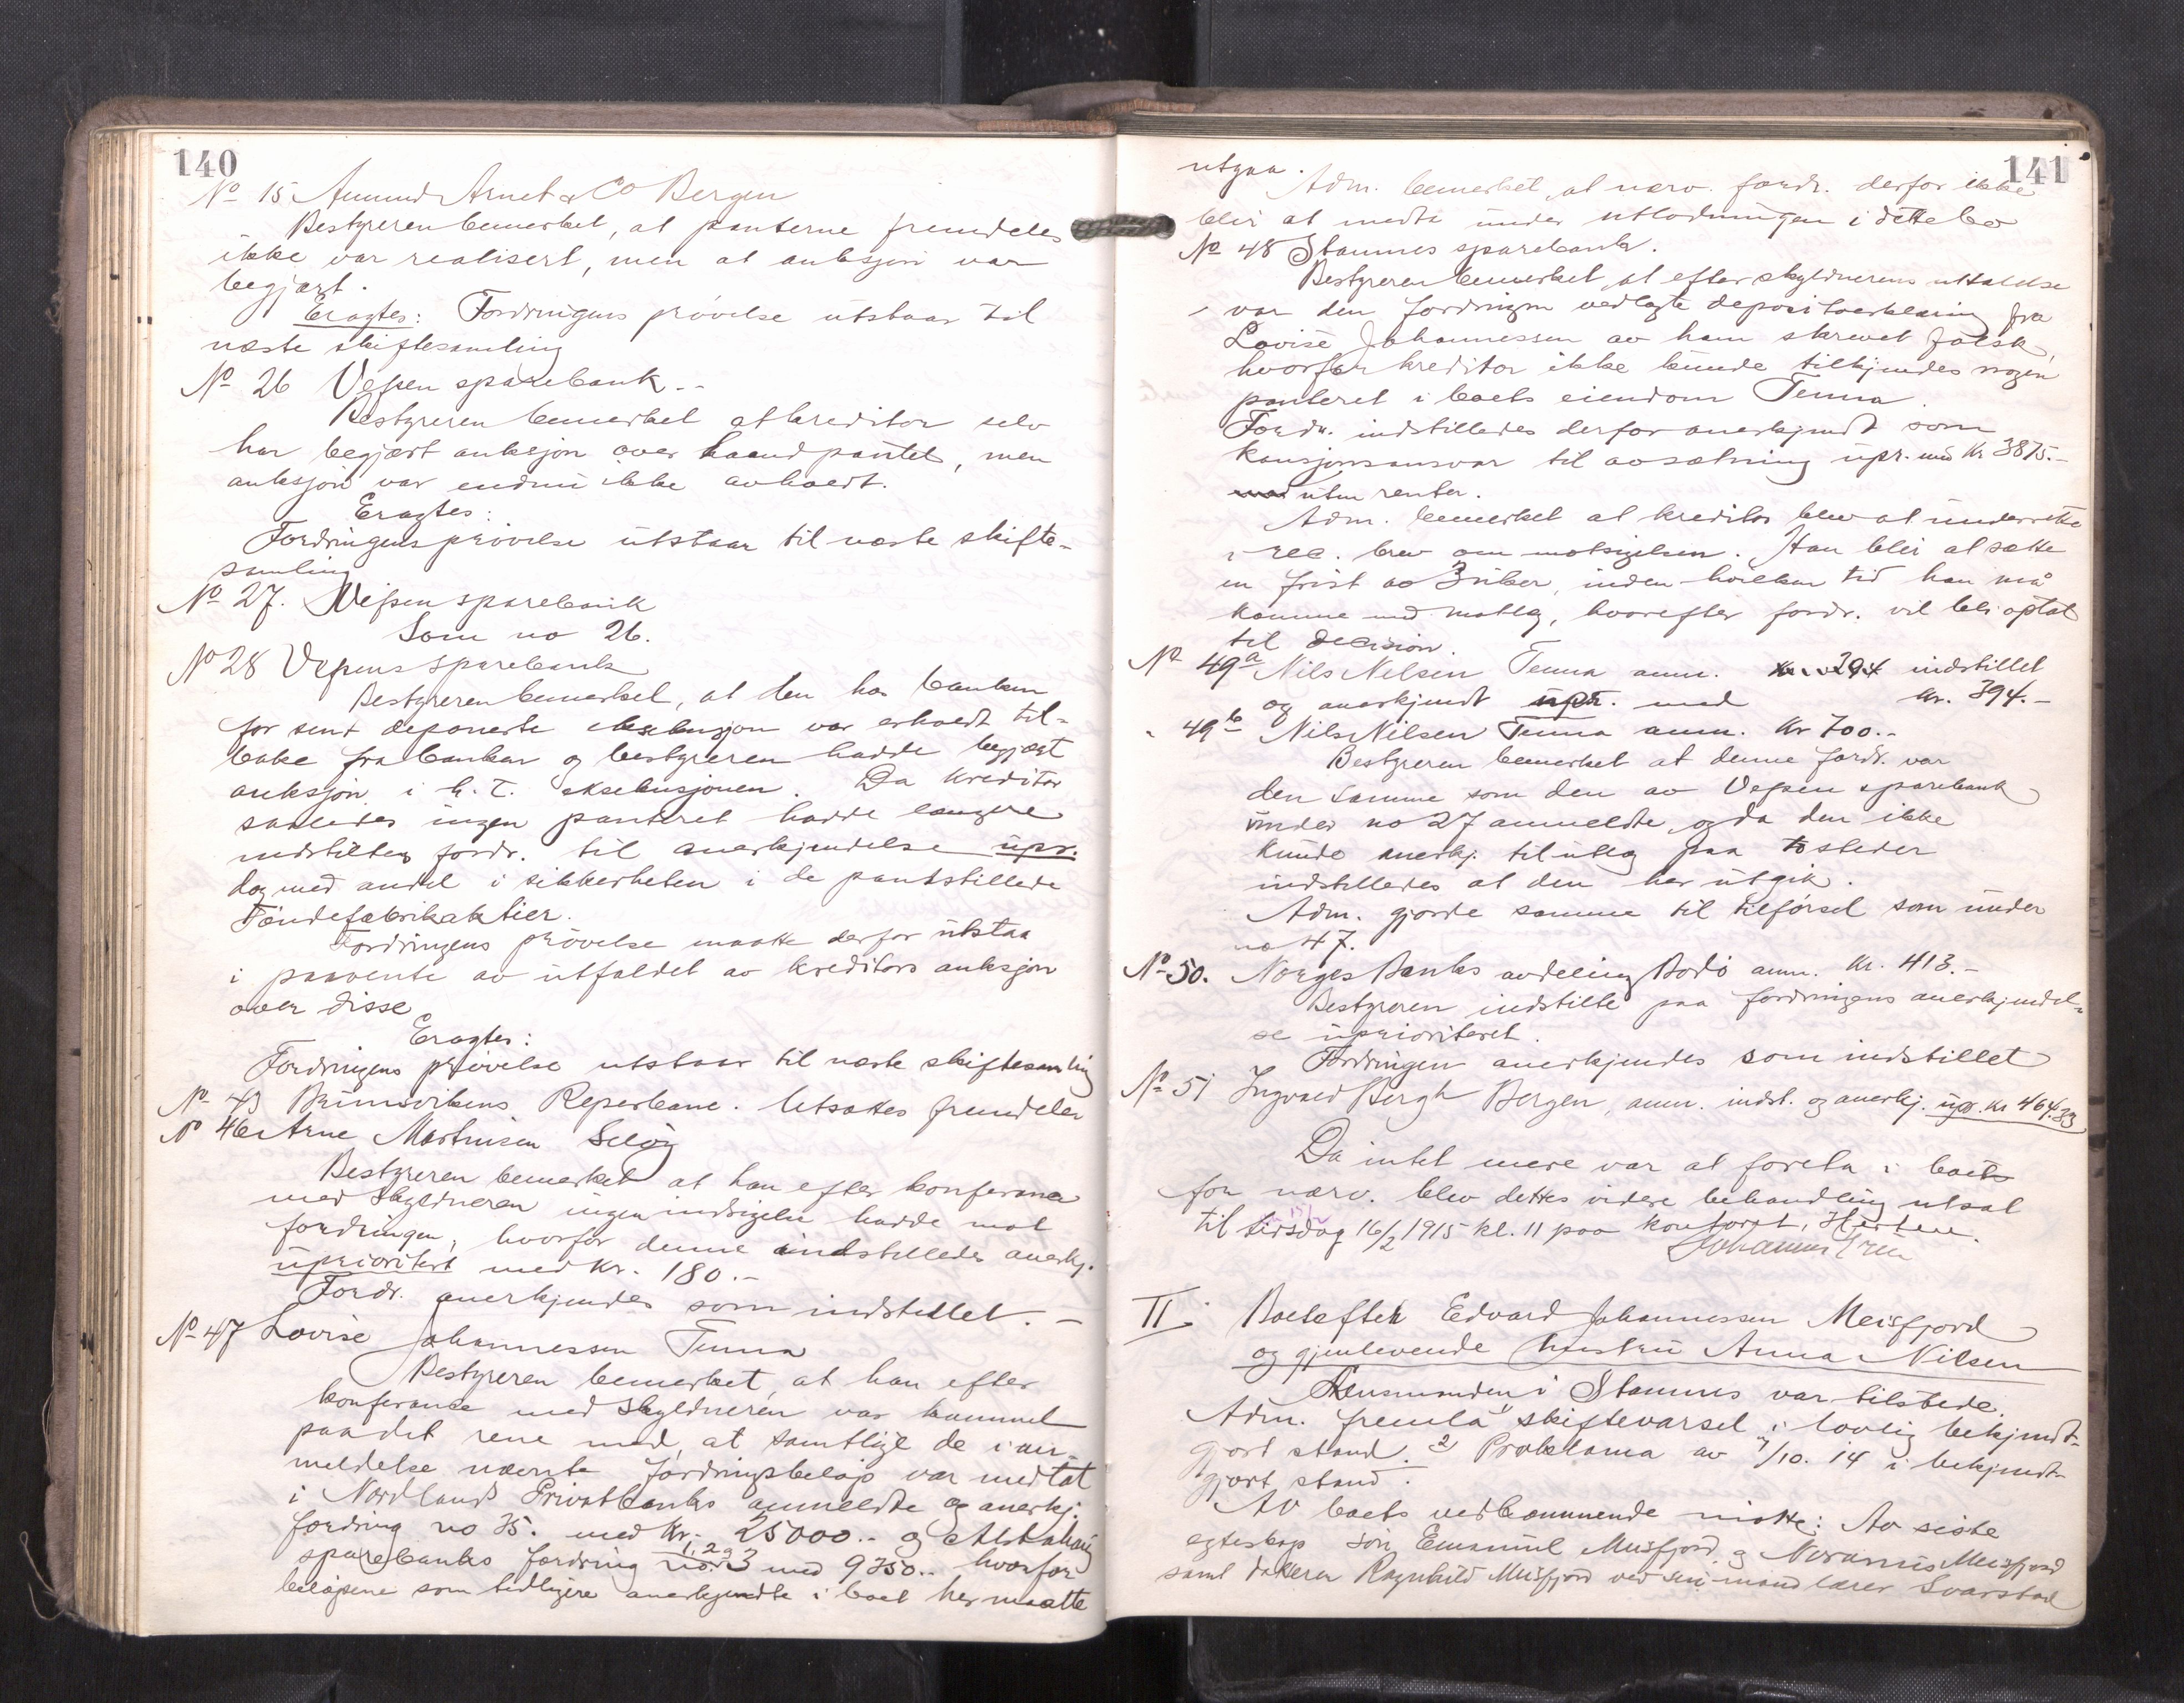 140
No 15 Amund Arnet & Co Bergen
Bestyreren bemerket, at panterne fremdeles
ikke var realisert, men at auksjon var
begjært.
Eragtes: Fordringens prövelse utstaar til
næste skiftesamling
No 26 Vefsen sparebank..
Bestyreren bemerket at kreditor selv
har begjært auksjon over haandpantet, men
auksjon var endnu ikke avholdt.
Eragtes:
Fordringens prövelse utstaar til næste skifte-
samling
No 27. Vefsen sparebank
Som no 26.
No 28 Vefsens sparebank
Bestyreren bemerket, at den hos banken
for sent deponerte eksekusjon var erholdt til-
bake fra banken og bestyreren hadde begjært
auksjon i h. t. eksekusjonen. Da kreditor
saaledes ingen panteret hadde længere
indstilles fordr. til anerkjendelse upr.
dog med andel i sikkerheten i de pantstillede
Töndefabrikaktier.
Fordringens prövelse maatte derfor utstaa
i paavente av utfaldet av kreditors auksjon
over disse
Eragtes:
Fordringens prövelse utstaar til næste skiftesamling
No 43 Brunsvikens Reperbane. Utsattes fremdeles
No 46 Arne Martinsen Selöy
Bestyreren bemerket at han efter konferance
med skyldneren ingen indsigelse hadde mot
fordringen, hvorfor denne indstilledes anerkj.
uprioritert med kr. 180.-
Fordr. anerkjendes som indstillet. -
No 47 Lovise Johannessen Tenna
Bestyreren bemerket, at han efter
konferance med skyldneren var kommet
paa det rene med, at samtlige de i an-
meldelse nævnte fordringsbelöp var medtat
i Nordlands Privatbanks anmeldte og anerkj.
fordring no 35. med kr. 25000.- og Alstahaug
sparebanks fordring no. 1, 2 og 3 med 9750.- hvorfor
belöpene som tidligere anerkjendte i boet her maatte
141
utgaa.
Adm. bemerket, at nærv. fordr. derfor ikke
blir at medta under utlodningen i dette bo
No 48 Stamnes sparebank.
Bestyreren bemerket, at efter skyldnerens uttalelse
var den fordringen vedlagte depositoerklæring fra
Lovise Johannessen av ham skrevet falsk,
hvorfor kreditor ikke kunde tilkjendes nogen
panteret i boets eiendom Tenna.
Fordr. indstilledes derfor anerkjendt som
kausjonsansvar til avsætning upr. med kr 3875.-
uten renter.
Adm. bemerket at kreditor blev at underrette
i rec. brev om motsigelsen. Han blir at sætte
en frist av 3 uker, inden hvilken tid han må
komme med motlæg, hvorefter fordr. vil bli optat
til decision.
No 49a Nils Nelsen Tenna anm. kr. 394 indstillet
og anerkjendt upr. med kr. 394.-
" 49b Nils Nilsen Tenna anm. kr 700.-
Bestyreren bemerket at denne fordr. var
den samme som den av Vefsen sparebank
under no 27 anmeldte, og da den ikke
kunde anerkj. til utlæg paa to steder
indstilledes at den her utgik.
Adm. gjorde samme til tilförsel som under
no 47.
No 50. Norges Banks avdeling Bodö anm. kr. 413.-
Bestyreren indstilte paa fordringens anerkjendel-
se uprioriteret.
Fordringen anerkjendes som indstillet
No 51 Ingvald Bergh Bergen, anm. indst. og anerkj. upr. kr 464.33
Da intet mere var at foreta i boet
for nærv. blev dettes videre behandling utsat
til tirsdag 16/2 1915 kl. 11 paa kontoret.
II. Boet efter Edvard Johannessen Meisfjord
og gjenlevende hustru Anna Nilsen
Lensmanden i Stamnes var tilstede.
Adm. fremla 1 skiftevarsel i lovlig bekjendt-
gjort stand. 2 Proklama av 7/10. 14 i bekjendt-
gjort stand.
Av boets vedkommende mötte: Av siste
egteskap sön Emanuel Meisfjord og Meisfjord
samt datteren Ragnhild Meisfjord ved sin mand lærer Svarstad